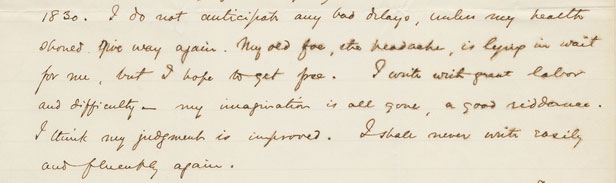 1830. I do not anticipate any bad delays, unless my health
should give way again. My old foe, the headache, is lying in wait
for me, but I hope to get free. I write with great labor
and difficulty — my imagination is all gone, a good riddance.
I think my judgment is improved. I shall never write easily
and fluently again.